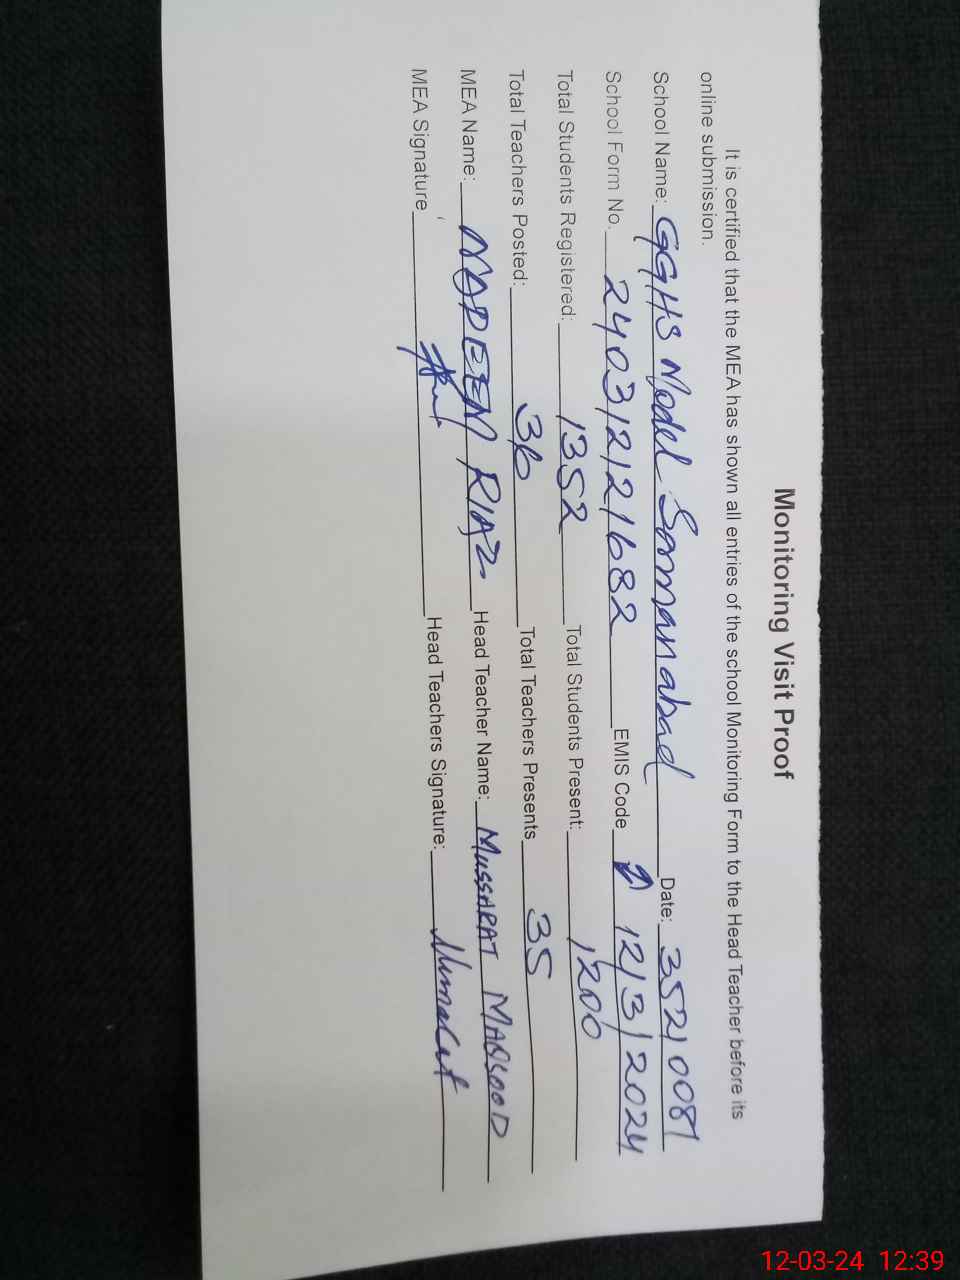 Monitoring Visit Proof
It is certified that the MEA has shown all entries of the school Monitoring Form to the Head Teacher before its
online submission.
School Name: GGHS Model Sammanabad Date: 35210081
School Form No. 240312121682 EMIS Code 12/3/2024
Total Students Registered: 1352 Total Students Present: 1200
Total Teachers Posted: 36 Total Teachers Presents 35
MEA Name: NADEEM RIAZ Head Teacher Name: MUSSARAT MAQSOOD
MEA Signature Head Teachers Signature:
12-03-24 12:39